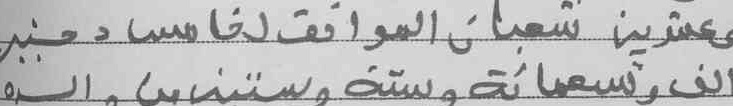 وعشرين شعبان الموافق لخامس دجنبر
الف وتسعمائة وستة وستين م